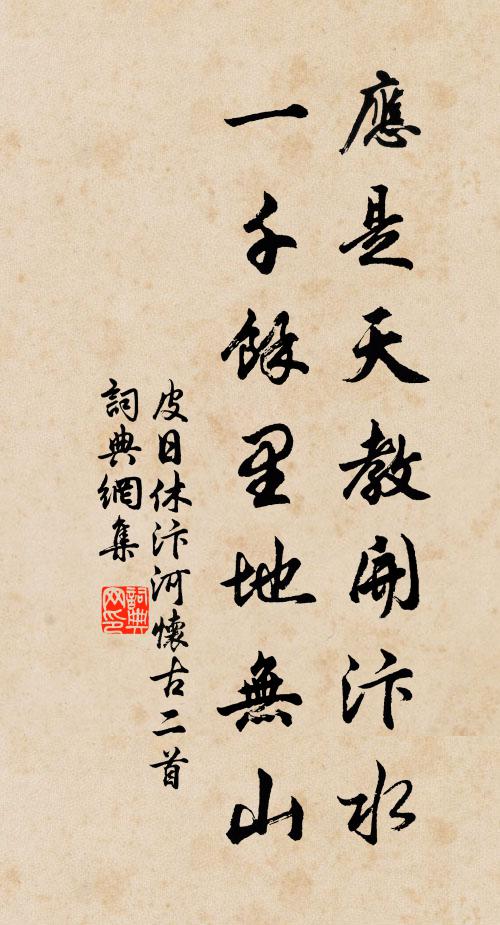 應是天教開汴水
一千餘里地無山
皮日休汴河懷古二首
詞典網集
詞典网印